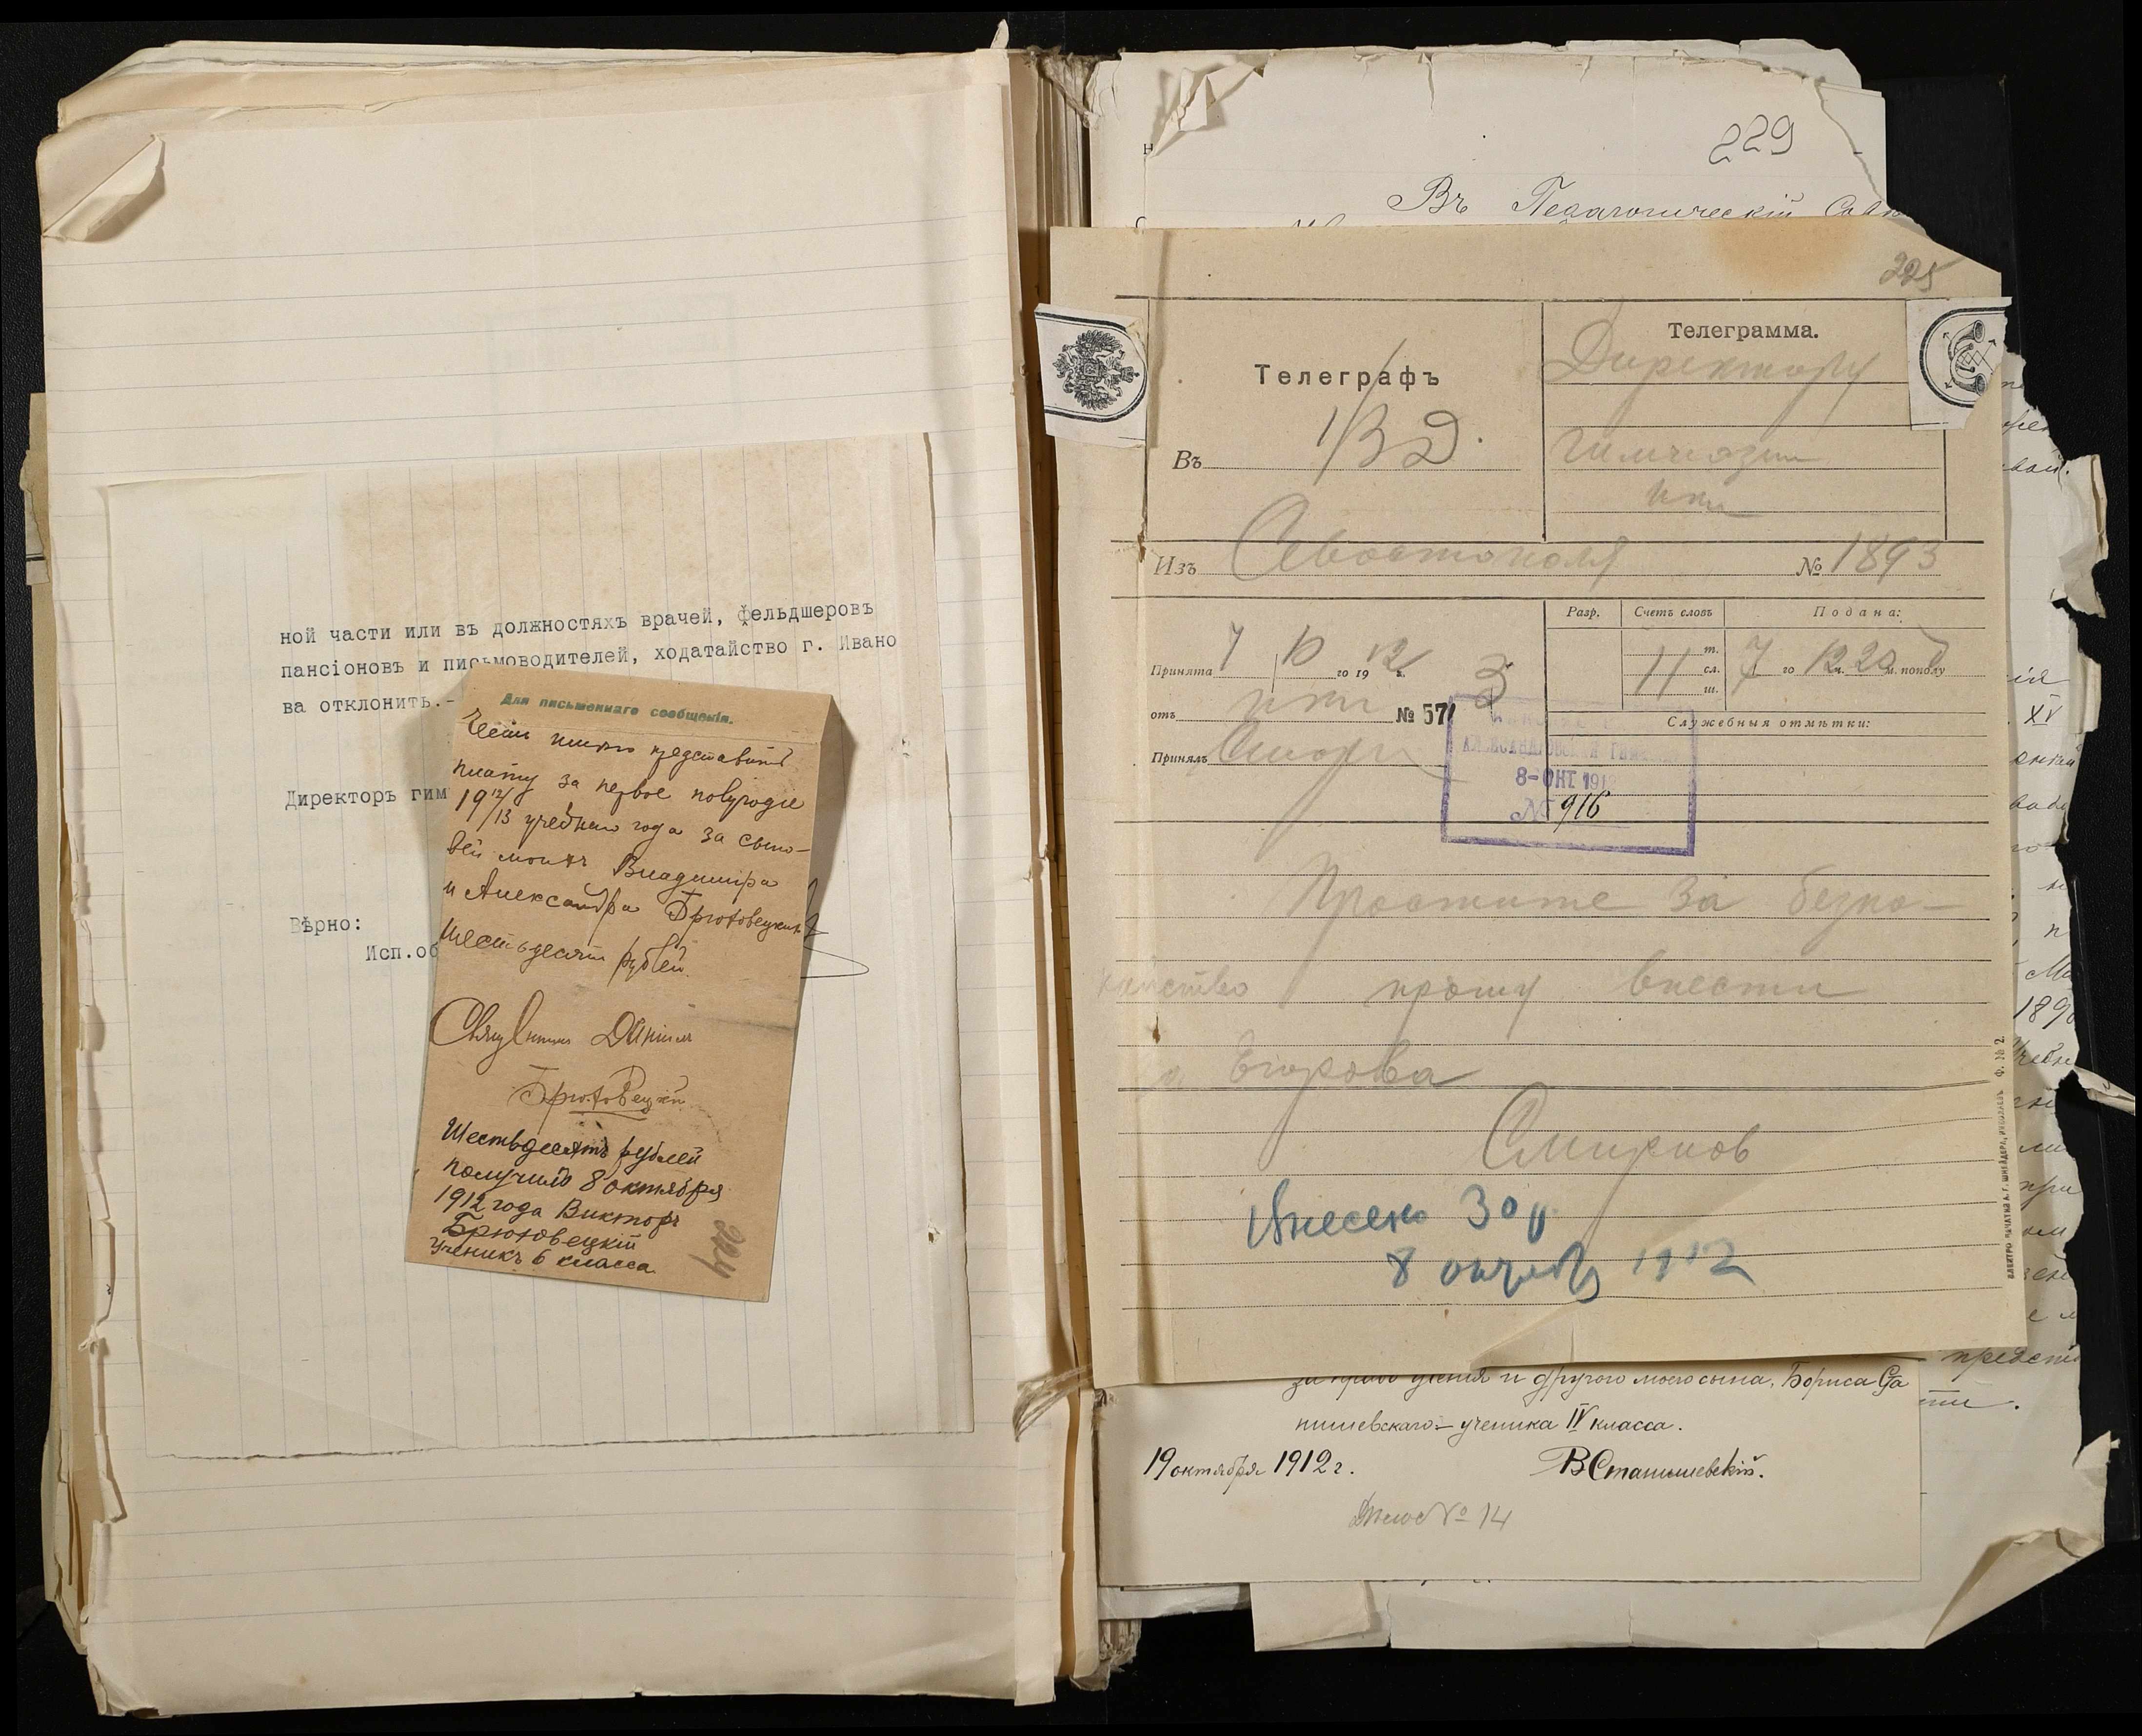 ной части или въ должностяхъ врачей, фельдшеровъ
пансіоновъ и письмоводителей, ходатайство г. Ивано
ва отклонить.-
Директоръ гим
Вѣрно:
Исп.об
Для письменнаго сообщенія.
Честь имѣю представить
плату за первое полугодіе
19 12/13 учебнаго года за сыно-
вей моихъ Владиміра
и Александра Брютовецкихъ
шестьдесятъ рублей.
Священникъ Даніилъ
Брютовецкій
Шестьдесятъ рублей
получилъ 8 октября
1912 года Викторъ
Брютовецкій
Ученикъ 6 класса.
224
229
Въ Педагогическій Совѣ
225
Телеграфъ
Въ
Телеграмма.
Директору
Гимназіи
Изъ Севастополя № 1893
Разр. Счетъ словъ Подана:
Принята 7 10 го 19 12 г.
т.
11 сл.
ш.
7 го 12 ч. 20 м. пополу д
отъ № 571
Служебныя отмѣтки:
Принялъ
АЛЕКСАНДРОВСКОЙ
8-ОКТ 1912
№ 916
Простите за безпо-
койство прошу внести
Егорова
Смирнов
Внесено 30 р.
8 октября 1912
за право ученія и другого моего сына, Бориса Ста
нишевскаго – ученика IV класса.
19 октября 1912 г. ВСтанишевскій.
Дѣло № 14
XV
189
предст